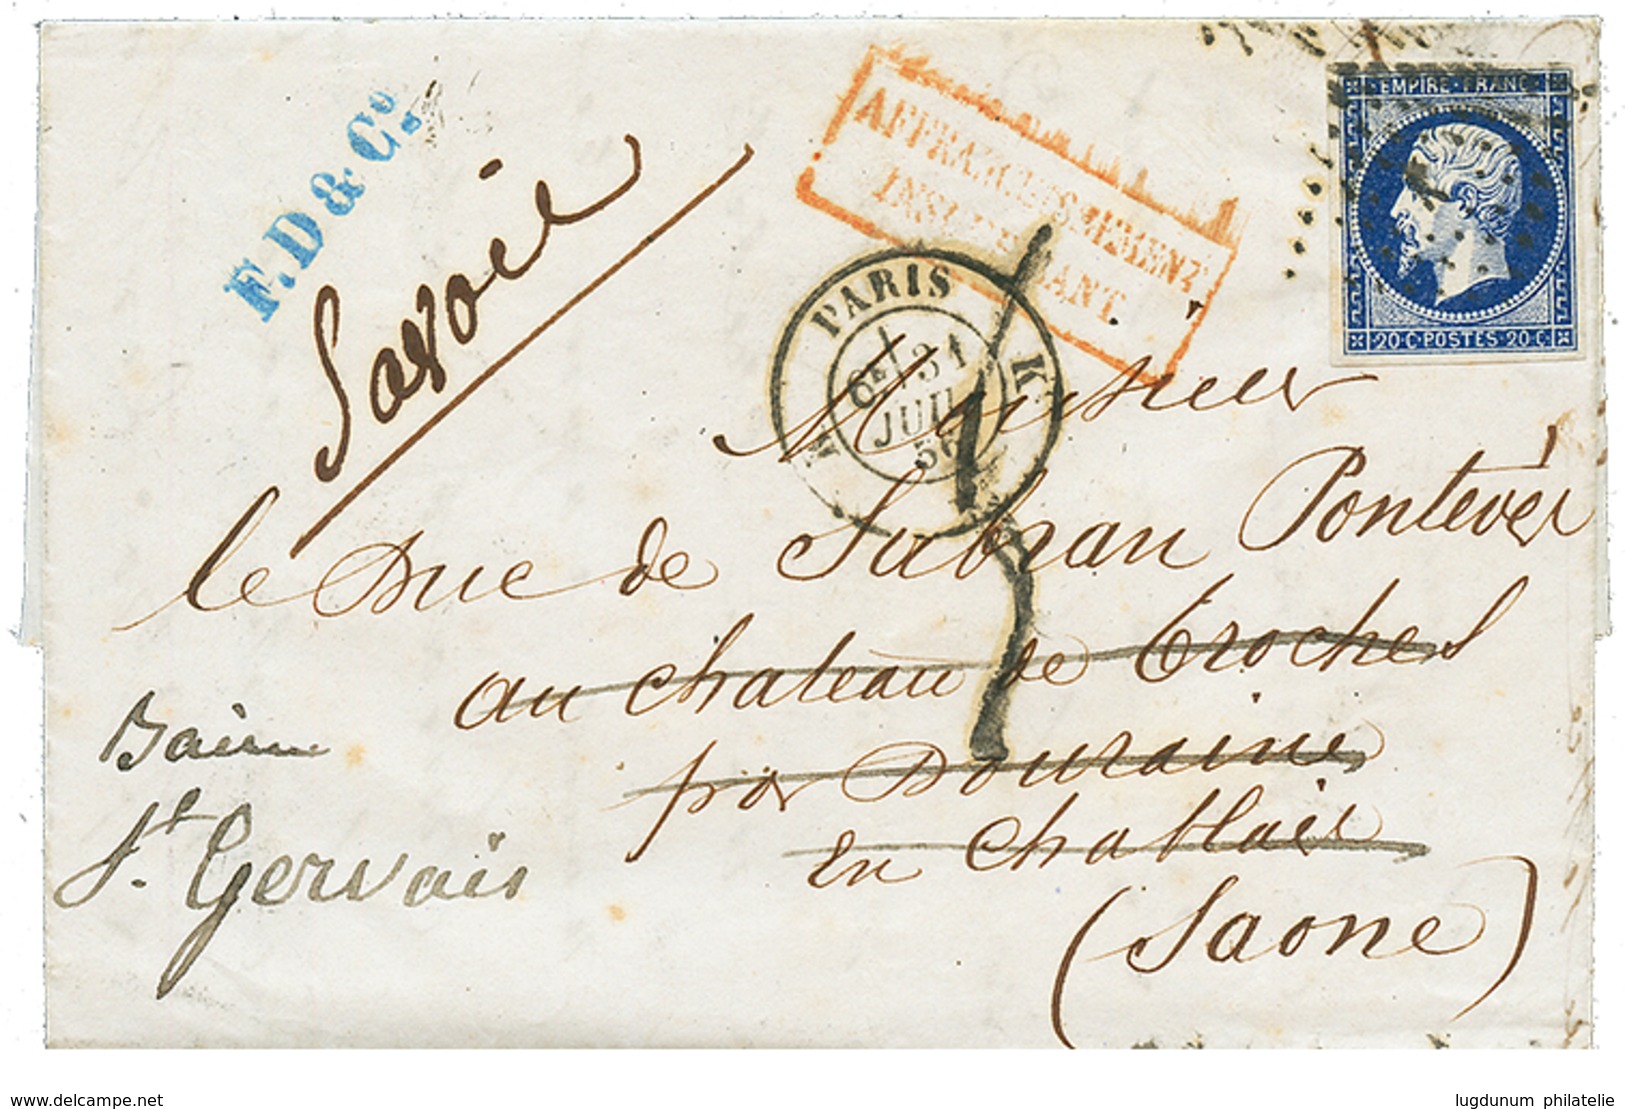 EMPIRE FRANC
20·C·POSTES·20·C
F.D & Cº.
Savoie
AFFRANCHISSEMENT
INSUFFISANT.
PARIS
K
31
JUIL
56
Monsieur
le Duc de Sabran Pontevès
au chateau de Troches
par Douvaine
en Chablais
(Saone)
Bains
St. Gervais
www.delcampe.net
lugdunum philatelie